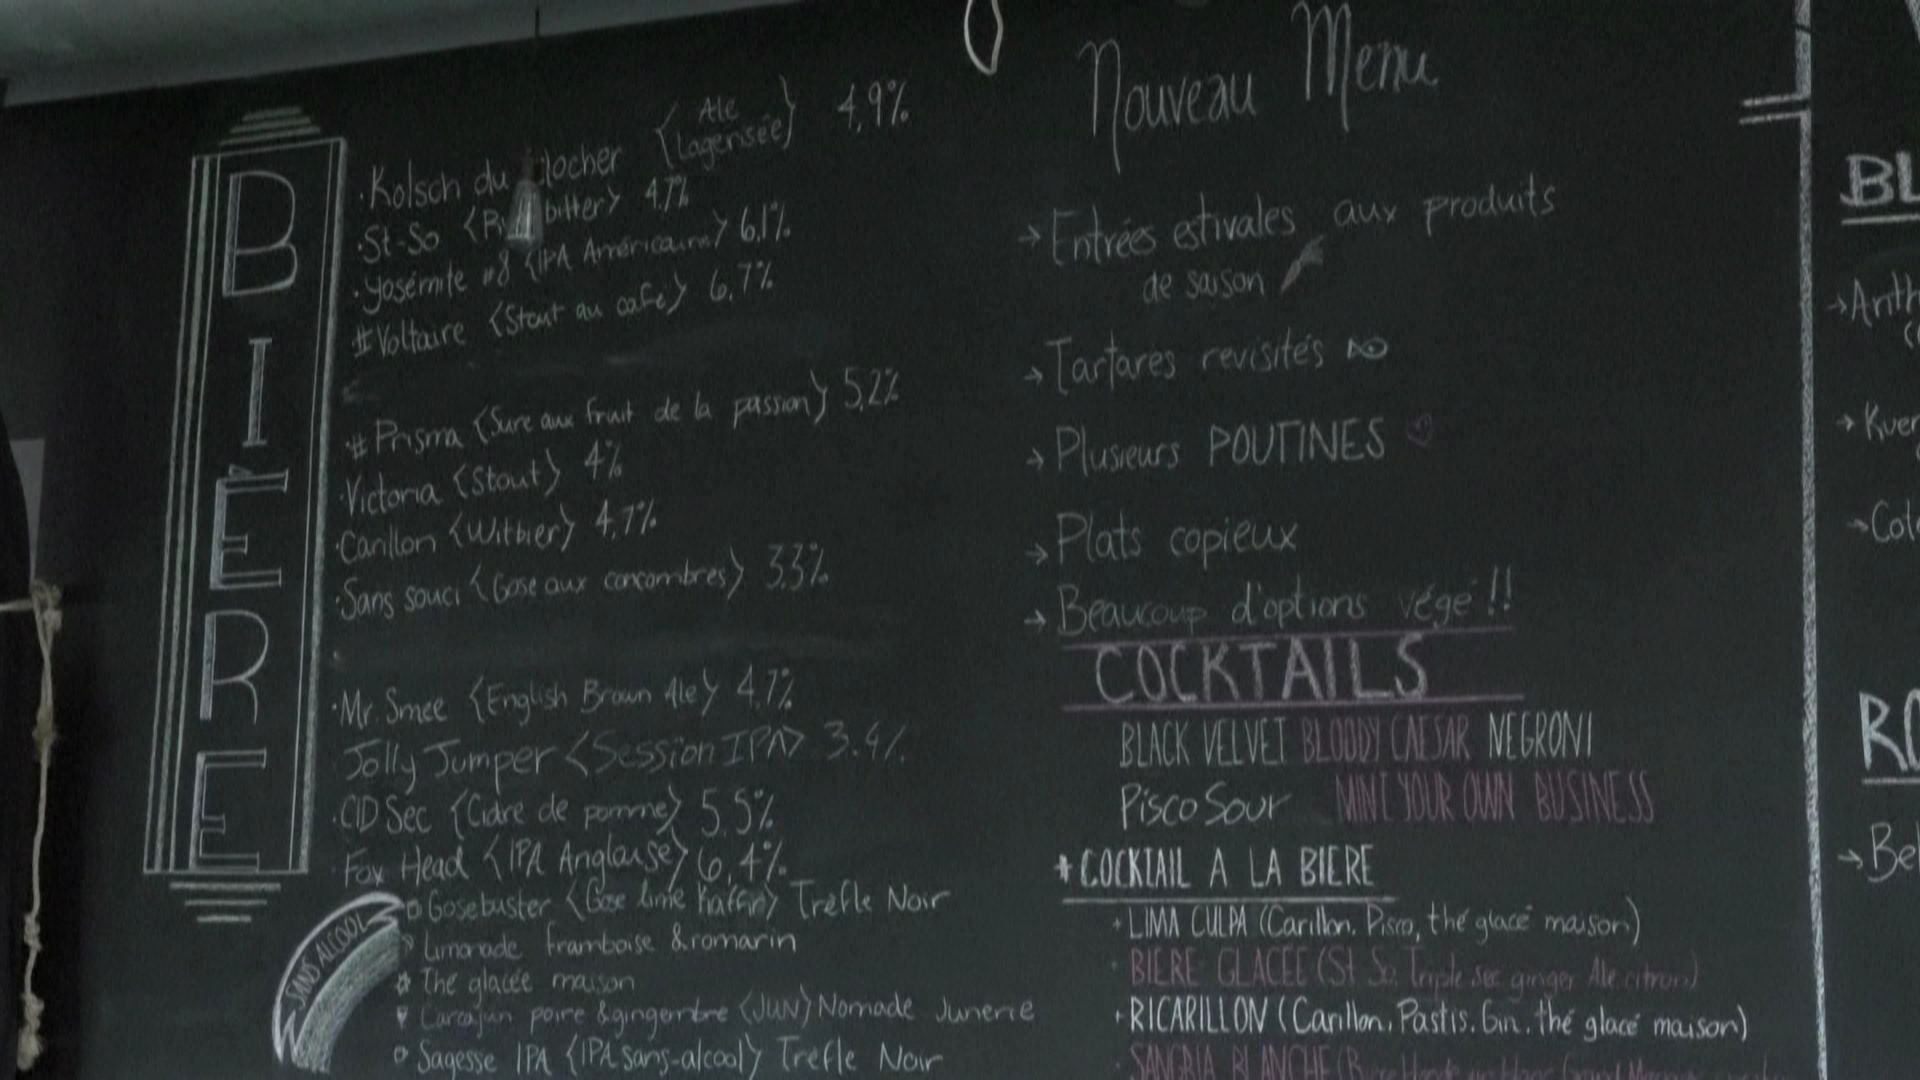 BIÈRE
·Kolsch du locher {Ale Lagerisée} 4,9%
·St-So bitter} 4,7%
·Yosémite #8 {IPA Américaine} 6,1%
#Voltaire {Stout au café} 6,7%
# Prisma {Sure aux fruit de la passion} 5,2%
·Victoria {Stout} 4%
·Carillon {Witbier} 4,7%
·Sans souci {Gose aux concombres} 3,3%
·Mr. Smee {English Brown Ale} 4.7%
Jolly Jumper <Session IPA> 3.4%
·CID Sec {Cidre de pomme} 5.5%
·Fox Head {IPA Anglaise} 6,4%
SANS ALCOOL
Gosebuster {Gose lime Kaffir} Trèfle Noir
Limonade framboise & romarin
Thé glacée maison
Carcajun poire & gingembre {JUN} Nomade Junerie
Sagesse IPA {IPA sans-alcool} Trèfle Noir
Nouveau Menu
→ Entrées estivales aux produits
de saison
→ Tartares revisités
→ Plusieurs POUTINES ♡
→ Plats copieux
→ Beaucoup d'options végé !!
COCKTAILS
BLACK VELVET BLOODY CAESAR NEGRONI
Pisco Sour MINT YOUR OWN BUSINESS
+ COCKTAIL A LA BIERE
+ LIMA CULPA (Carillon, Pisco, thé glacé maison)
· BIERE GLACÉE (St So, Triple sec ginger Ale, citron)
+ RICARILLON (Carillon, Pastis, Gin, thé glacé maison)
· SANGRIA BLANCHE
BL
→ Anth
→ Kuer
→ Col
RO
→ Bel